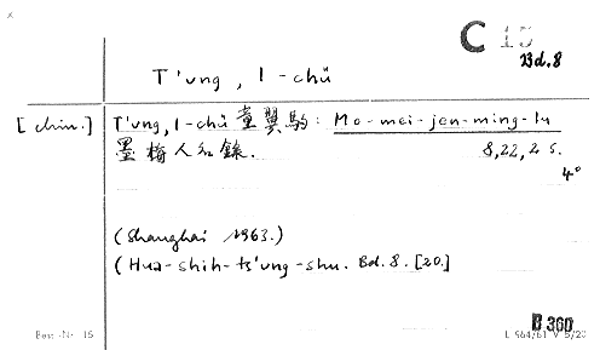 C 15
Bd. 8
T'ung, I-chü
[chin.]
T'ung, I-chü 童翼駒: Mo-mei-jen-ming-lu
墨梅人名錄.
8,22,2 S.
4°
(Shanghai 1963.)
(Hua-shih-ts'ung-shu. Bd. 8. [20.]
B 360
Best.-Nr. 15
L 964/61 V 5/20